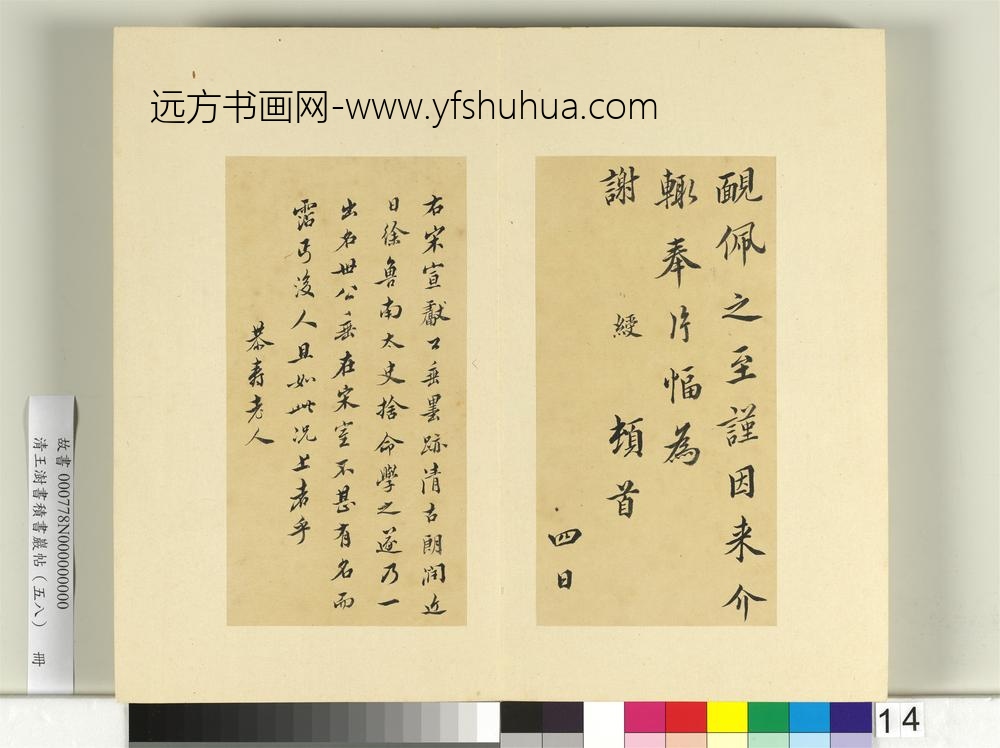 远方书画网-www.yfshuhua.com
靦佩之至謹因来介
輙奉片幅為
謝
綬 頓首
四日
右宋宣獻公垂墨跡清古朗潤近
日徐魯南太史捨命學之遂乃一
出名世公垂在宋室不甚有名而
霑丐後人且如此况上者乎
恭壽老人
故書 000778N000000000
清王澍書積書巖帖（五八） 冊
14